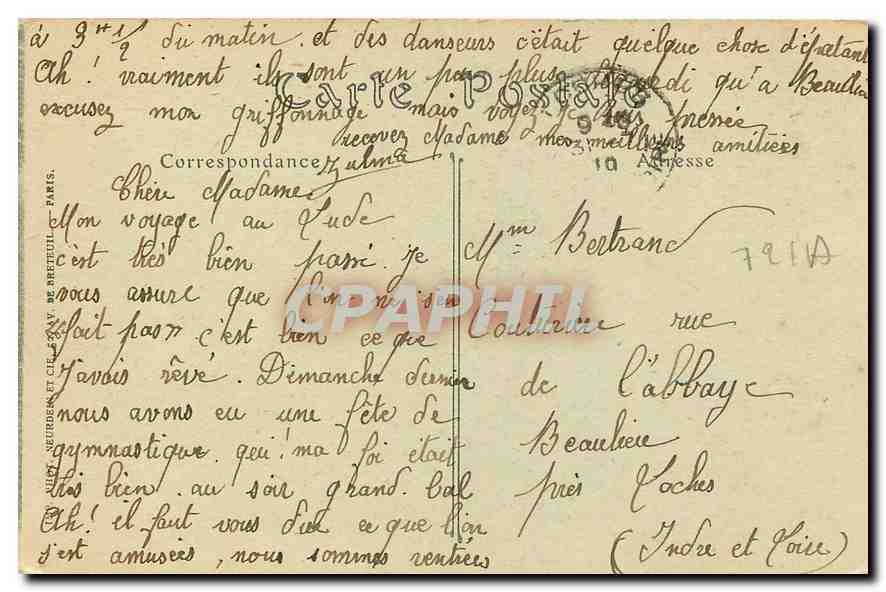 à 3 hr 1/2 du matin. et des danseurs c'était quelque chose d'épatant
Ah! vraiment ils sont un peu plus qu'a Beaulieu
Carte Postale
excusez mon griffonnage mais voyez je suis pressée
recevez Madame mes meilleurs amitiées
Zulma
Correspondance
Adresse
Chère Madame
Mon voyage au Lude
c'est très bien passé. Je
vous assure que l'on ne s'en
fait pas» c'est bien ce que
j'avais rêvé. Dimanche dernier
nous avons eu une fête de
gymnastique qui! ma foi était
très bien. au soir grand. bal
Ah! il faut vous dire ce que l'on
s'est amusées, nous sommes rentrées
Mme Bertrand
Couturière rue
de l'abbaye
Beaulieu
près Loches
(Indre et Loire)
721A
9
10
NEURDEIN ET CIE, 52, AV. DE BRETEUIL - PARIS.
CPAPHIL